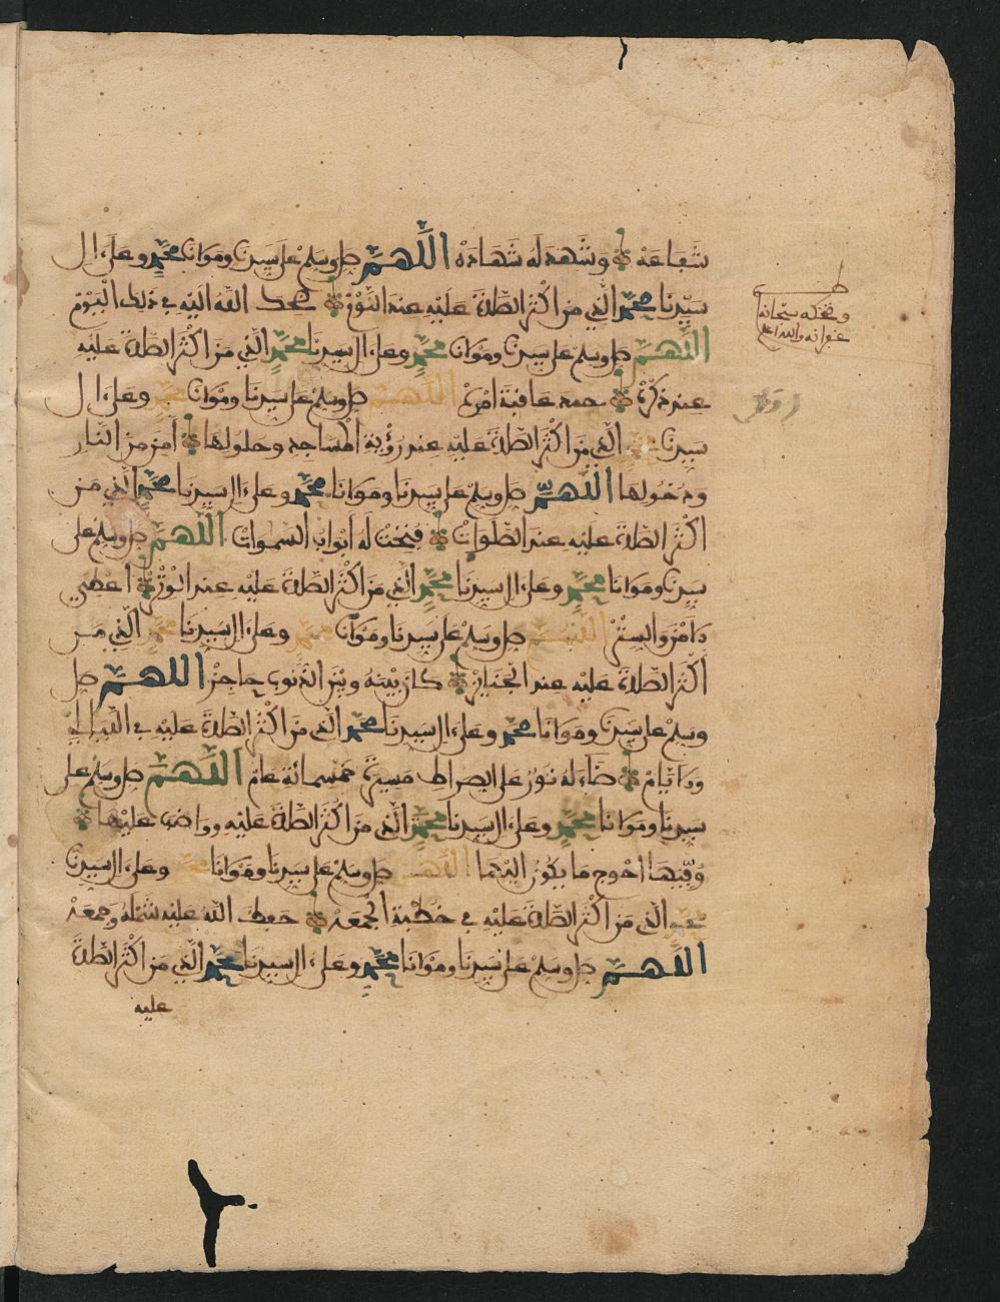 شفاعة وشهد له شهادة اللهم صل وسلم على سيدنا ومولانا محمد وعلى ءال
سيدنا محمد الذي من اكثر الصلاة عليه عند النوم اليه في ذلك اليوم
اللهم صل وسلم على سيدنا ومولانا محمد وعلى ءال سيدنا محمد الذي من اكثر الصلاة عليه
عند ذكره حمد عاقبة امره اللهم صل وسلم على سيدنا ومولانا محمد وعلى ءال
سيدنا محمد الذي من اكثر الصلاة عليه عند رؤية المساجد وحلولها امن من النار
ودخولها اللهم صل وسلم على سيدنا ومولانا محمد وعلى ءال سيدنا محمد الذي من
اكثر الصلاة عليه عند الصلوات فتحت له ابواب السموات اللهم صل وسلم على
سيدنا ومولانا محمد وعلى ءال سيدنا محمد الذي من اكثر الصلاة عليه عند اعطي
اللهم صل وسلم على سيدنا ومولانا محمد وعلى ءال سيدنا محمد الذي من
اكثر الصلاة عليه عند كان بينه وبين الذنوب حاجز اللهم صل
وسلم على سيدنا ومولانا محمد وعلى ءال سيدنا محمد الذي من اكثر الصلاة عليه في الليالي
والايام ضاء له نور على الصراط مسيرة خمسمائة عام اللهم صل وسلم على
سيدنا ومولانا محمد وعلى ءال سيدنا محمد الذي من اكثر الصلاة عليه وواضب عليها
وفيها احوج ما يكون اليها اللهم صل وسلم على سيدنا ومولانا محمد وعلى ءال سيدنا
محمد الذي من اكثر الصلاة عليه في خطبة الجمعة حفظ الله عليه شمله وجمعه
اللهم صل وسلم على سيدنا ومولانا محمد وعلى ءال سيدنا محمد الذي من اكثر الصلاة
عليه